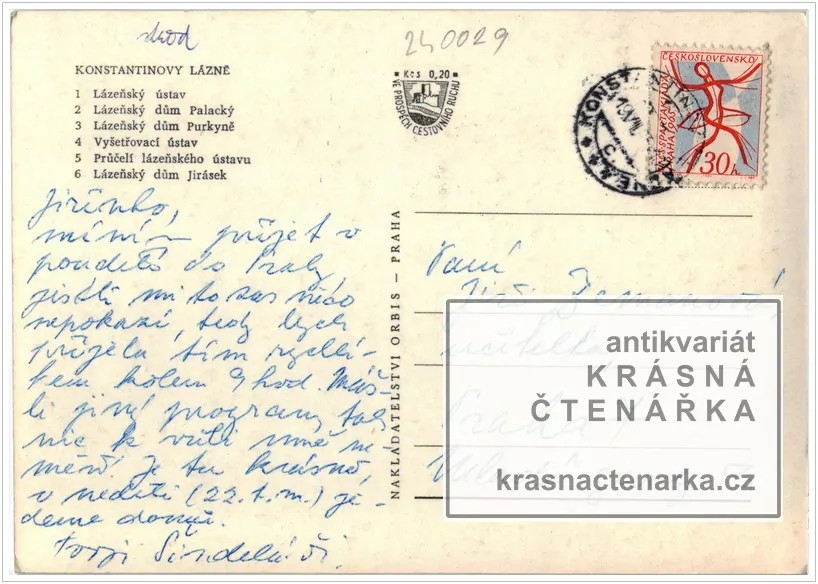 240029
KONSTANTINOVY LÁZNĚ
1 Lázeňský ústav
2 Lázeňský dům Palacký
3 Lázeňský dům Purkyně
4 Vyšetřovací ústav
5 Průčelí lázeňského ústavu
6 Lázeňský dům Jirásek
Jiřinko,
míním přijet v
pondělí do Prahy,
jestli mi to zas něco
nepokazí, tedy bych
přijela tím rychlí-
kem kolem 9 hod. Máš-
li jiný program, tak
nic k vůli mně ne-
měň! Je tu krásně,
v neděli (22. t. m.) je-
deme domů.
Šindeláři.
NAKLADATELSTVÍ ORBIS — PRAHA
Kčs 0,20
VE PROSPĚCH CESTOVNÍHO RUCHU
ČESKOSLOVENSKO
30h
Paní
učitelka
Praha
antikvariát
KRÁSNÁ
ČTENÁŘKA
krasnactenarka.cz